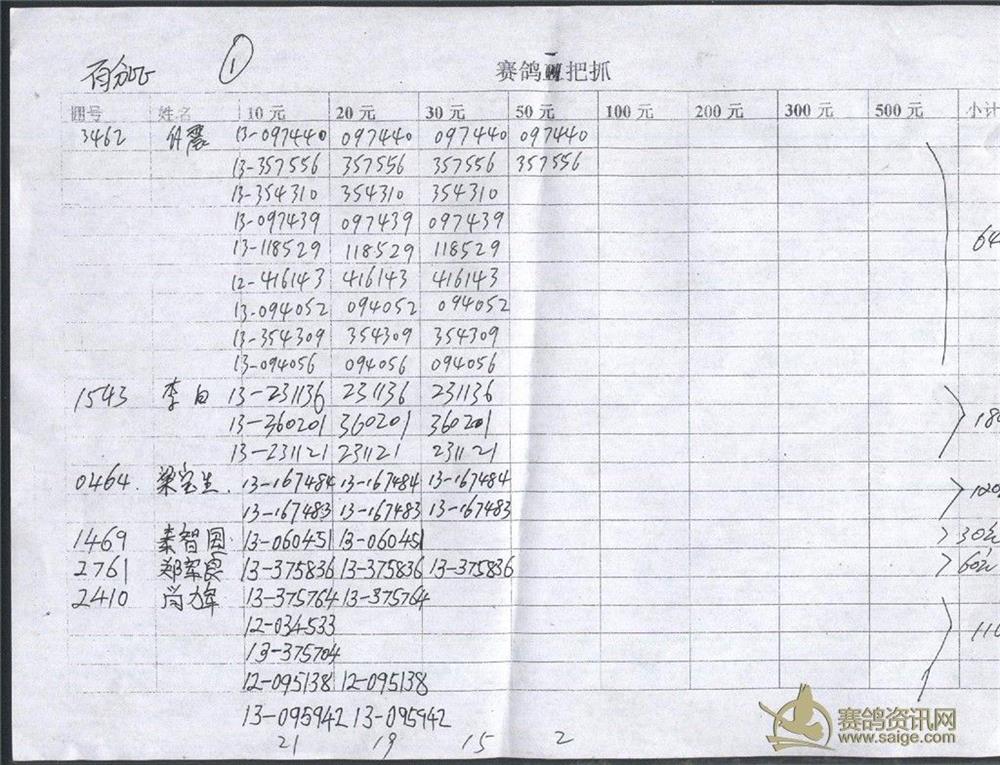 百分比 ①
赛鸽 把抓
棚号 姓名 10元 20元 30元 50元 100元 200元 300元 500元 小计
3462 付震 13-097440 097440 097440 097440
13-357556 357556 357556 357556
13-354310 354310 354310
13-097439 097439 097439
13-118529 118529 118529 64
12-416143 416143 416143
13-094052 094052 094052
13-354309 354309 354309
13-094056 094056 094056
1543 李白 13-231136 231136 231136
13-360201 360201 360201 180
13-231121 231121 231121
0464. 梁宝生. 13-167484 13-167484 13-167484
13-167483 13-167483 13-167483 120
1469 秦智国 13-060451 13-060451 30元
2761 郑军良 13-375836 13-375836 13-375836 60元
2410 尚力军 13-375764 13-375764
12-034533 110
13-375704
12-095138 12-095138
13-095942 13-095942
21 19 15 2
赛鸽资讯网
www.saige.com